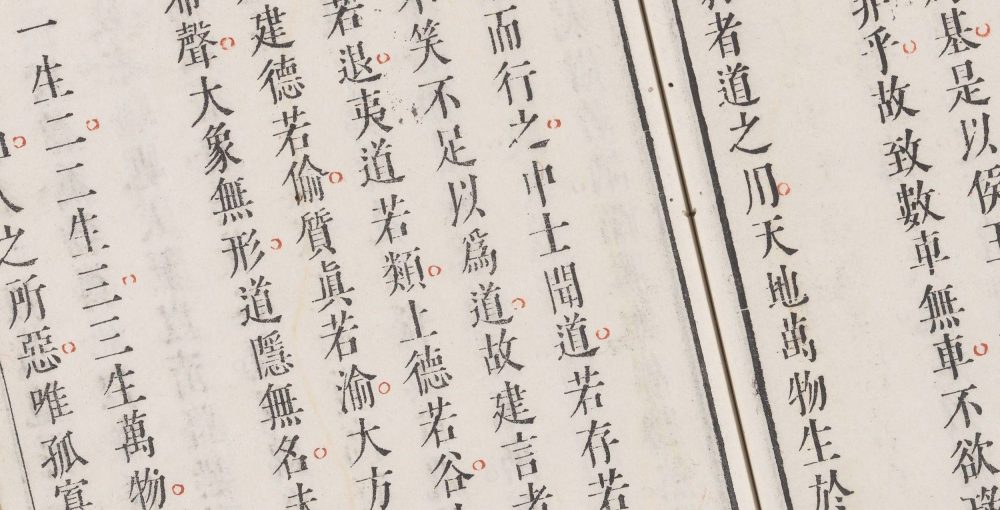 基是以侯王
乎故致數車無車不欲
者道之用天地萬物生於
而行之中士聞道若存若
笑不足以爲道故建言者
若退夷道若類上德若谷
建德若偷質眞若渝大方
聲大象無形道隱無名夫
一生二二生三三生萬物
人之所惡唯孤寡